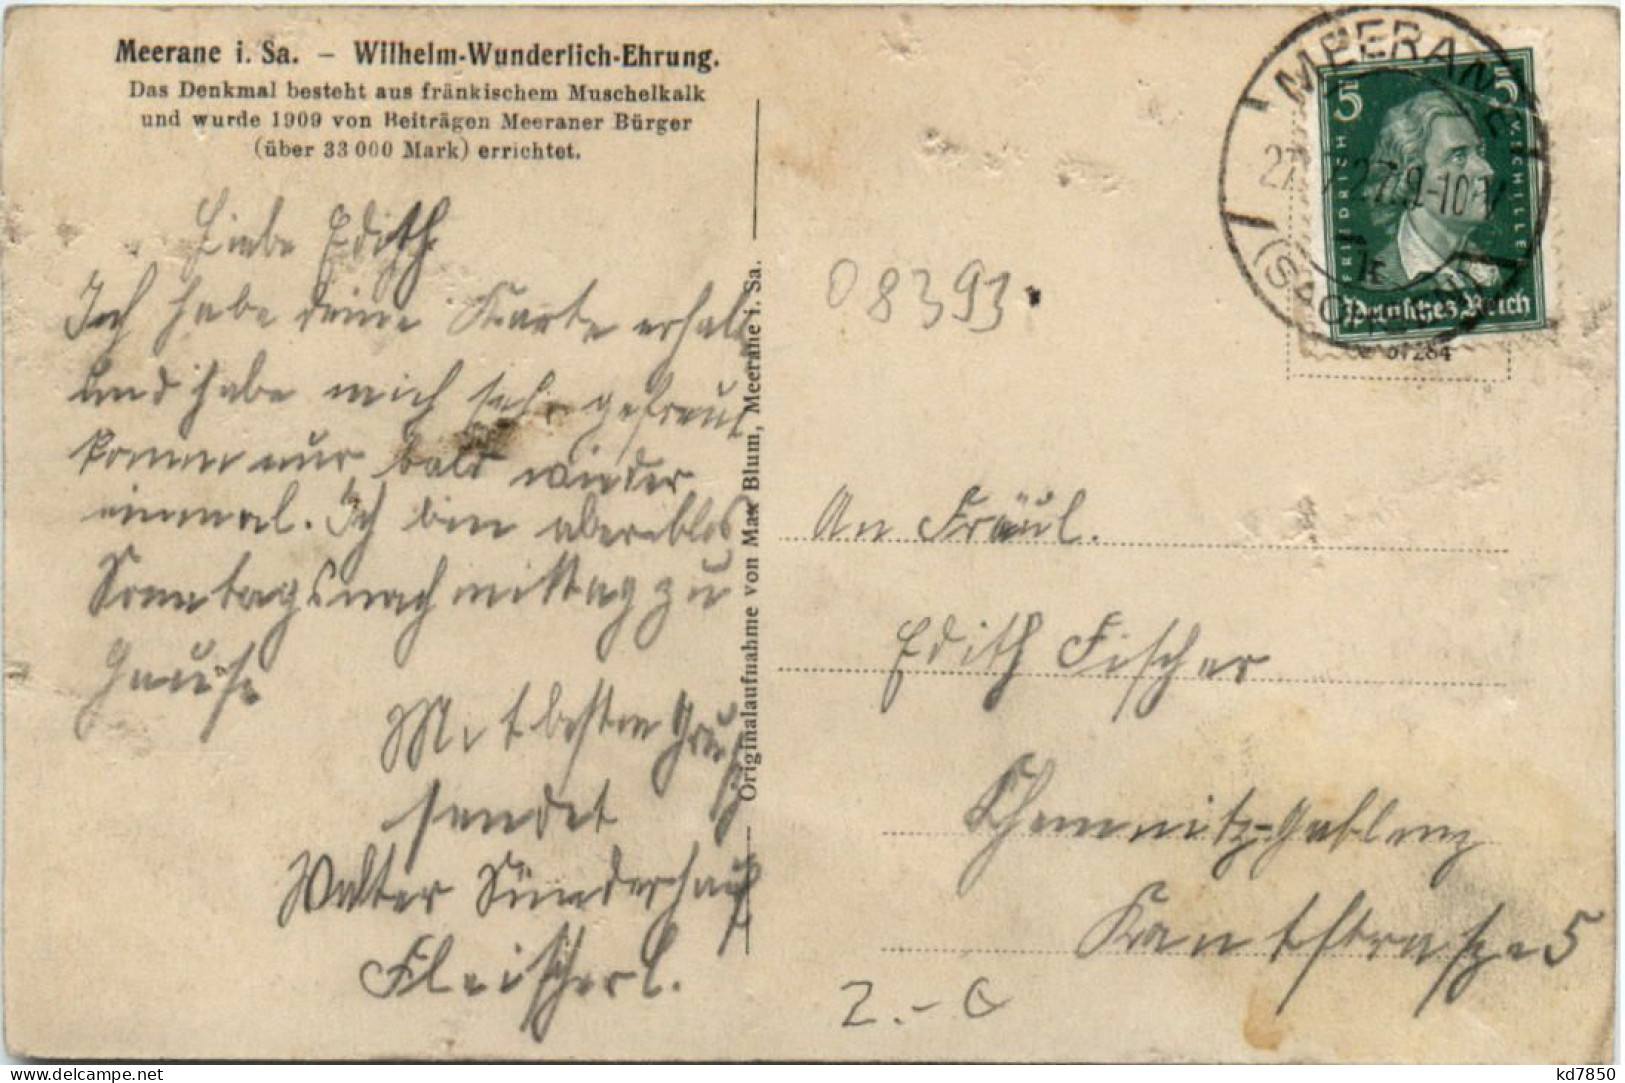 Meerane i. Sa. – Wilhelm-Wunderlich-Ehrung.
Das Denkmal besteht aus fränkischem Muschelkalk
und wurde 1909 von Beiträgen Meeraner Bürger
(über 33 000 Mark) errichtet.
Liebe Edith
Ich habe deine Karte erhalt
und habe mich sehr gefreut
komm nur bald wieder
einmal. Ich bin aber blos
Sonntagsnachmittag zu
Hause
Mit besten Gruß
sendet
Walter Sünderhauf
Fleischerl.
Originalaufnahme von Max Blum, Meerane i. Sa.
08393
MEERANE
27. 27. 9-10 V
(SACHSEN)
5 5
FRIEDRICH V. SCHILLER
Deutsches Reich
67284
An Fräul.
Edith Fischer
Chemnitz-Gablenz
Kantstraße 5
2.- G
kd7850